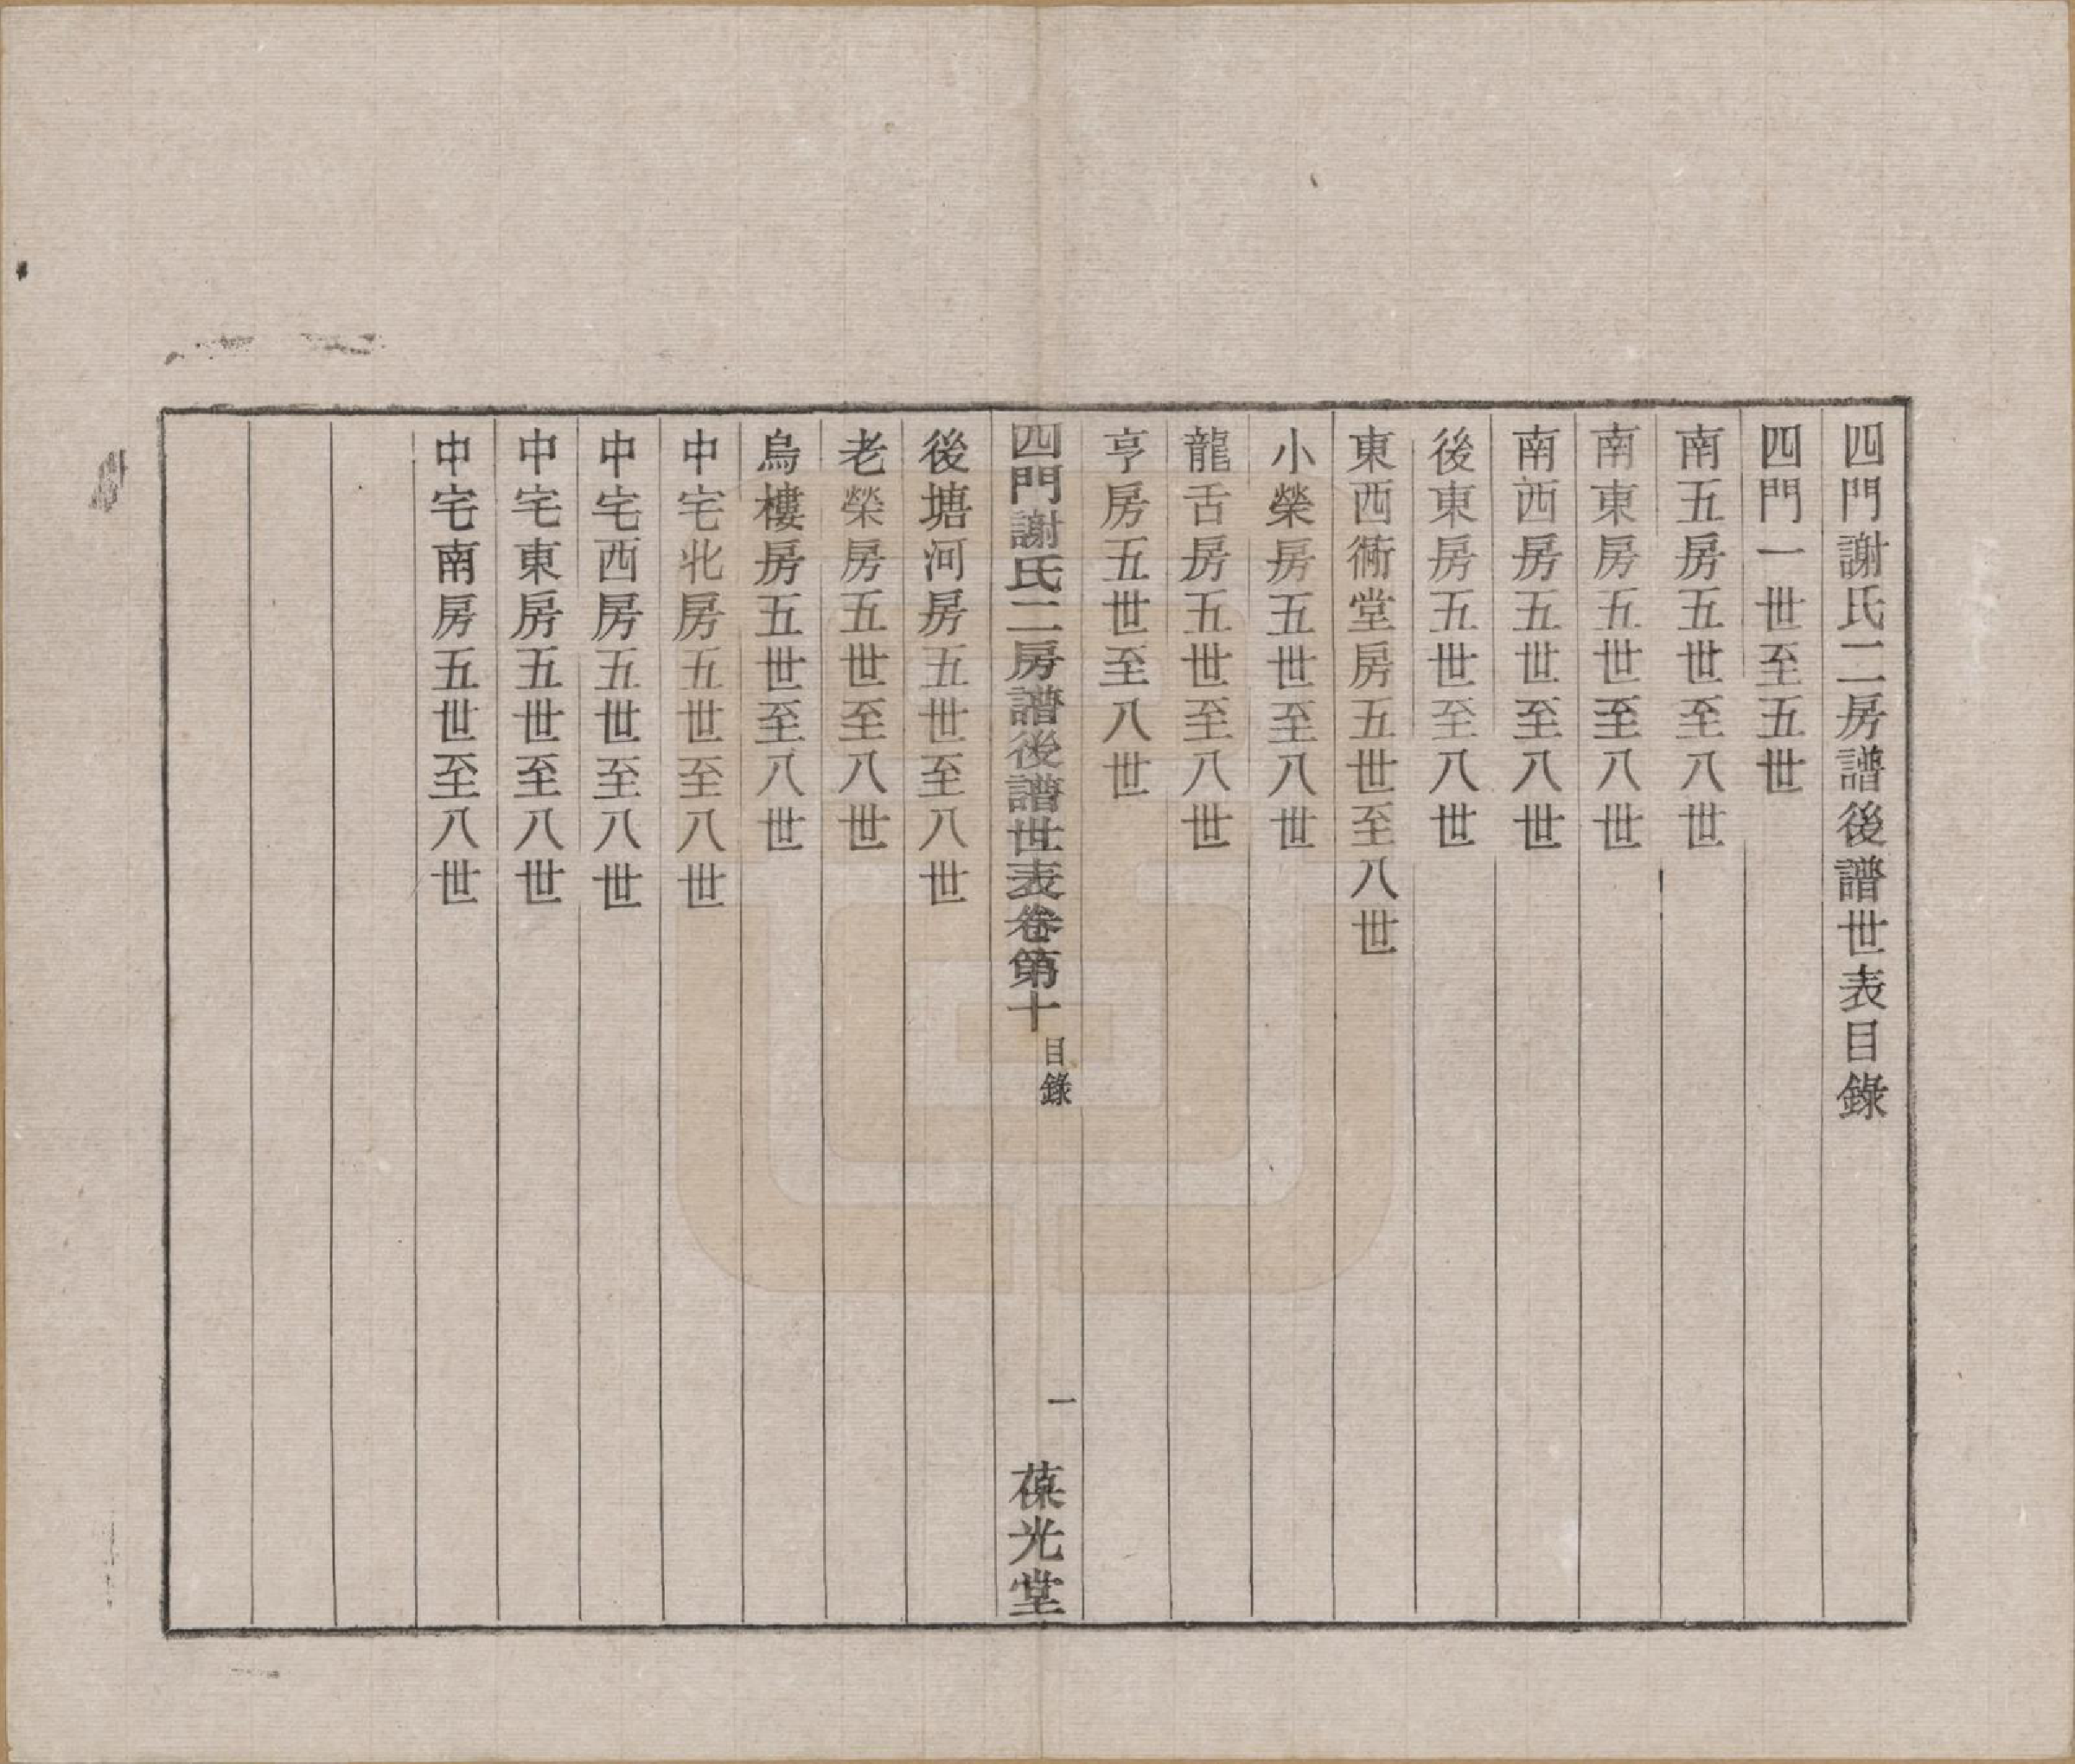 四門謝氏二房譜後譜世表目錄
四門一世至五世
南五房五世至八世
南東房五世至八世
南西房五世至八世
後東房五世至八世
東西衕堂房五世至八世
小榮房五世至八世
龍舌房五世至八世
亨房五世至八世
四門謝氏二房譜後譜世表卷第十 目錄 一 葆光堂
後塘河房五世至八世
老榮房五世至八世
烏樓房五世至八世
中宅北房五世至八世
中宅西房五世至八世
中宅東房五世至八世
中宅南房五世至八世